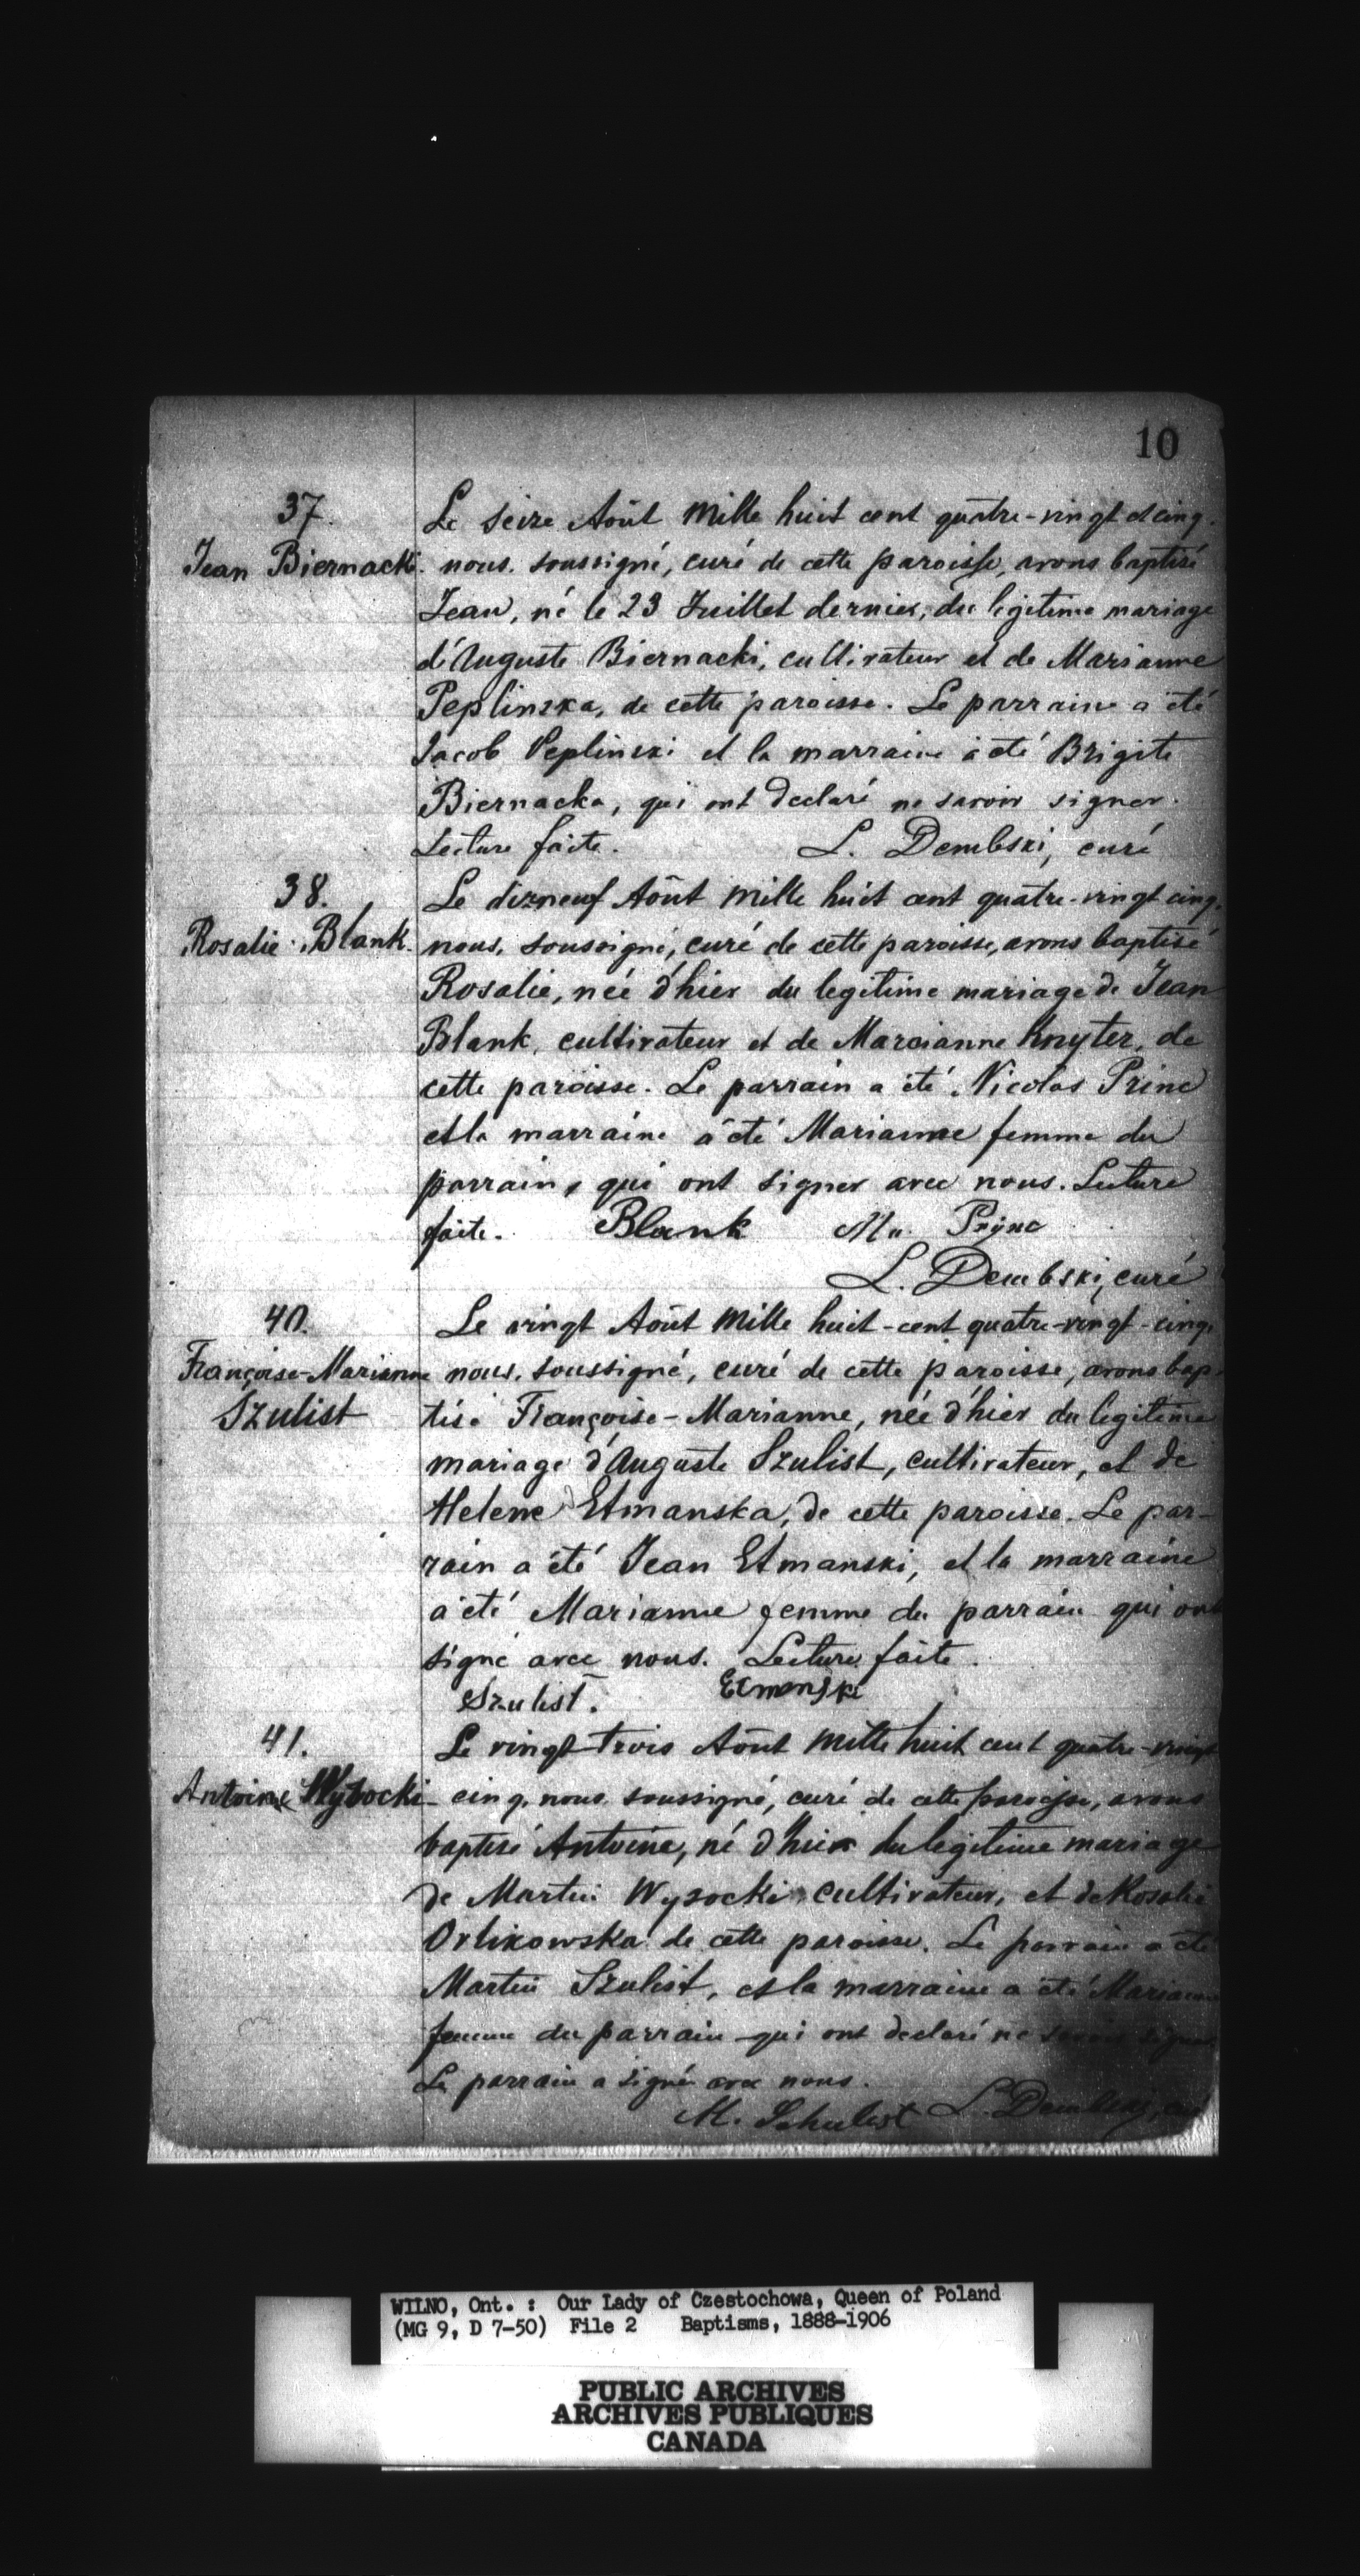 10
37.
Jean Biernacki.
Le seize Août Mille huit cent quatre-vingt et cinq.
nous, soussigné, curé de cette paroisse, avons baptisé
Jean, né le 23 Juillet dernier, du legitime mariage
d'Auguste Biernacki, cultivateur et de Marianne
Peplinska, de cette paroisse. Le parraine a été
Jacob Peplinski et la marraine a été Brigite
Biernacka, qui ont declaré ne savoir signer.
Lecture faite. L. Dembski, curé
38.
Rosalie Blank.
Le dizneuf Août Mille huit cent quatre-vingt cinq,
nous, soussigné, curé de cette paroisse, avons baptisé
Rosalie, née d'hier du legitime mariage de Jean
Blank, cultivateur et de Marianne Knyter, de
cette paroisse. Le parrain a été Nicolas Princ
et la marraine a été Marianne femme du
parrain, qui ont signer avec nous. Lecture
faite. Blank Prync
L. Dembski, curé
40.
Françoise-Marianne
Szulist
Le vingt Août Mille huit-cent quatre-vingt-cinq,
nous, soussigné, curé de cette paroisse, avons bap-
tisé Françoise-Marianne, née d'hier du legitime
mariage d'Auguste Szulist, cultivateur, et de
Helene Etmanska, de cette paroisse. Le par-
rain a été Jean Etmanski, et la marraine
a été Marianne femme du parrain qui ont
signé avec nous. Lecture faite.
Szulist. Etmanski
41.
Antoine Wysocki
Le vingt-trois Août Mille huit cent quatre-vingt
cinq, nous, soussigné, curé de cette paroisse, avons
baptisé Antoine, né d'hier du legitime mariage
de Martin Wysocki, cultivateur, et de Rosalie
Orlikowska de cette paroisse. Le parrain a été
Martin Szulist, et la marraine a été Marianne
femme du parrain qui ont declaré ne savoir signer
Le parrain a signé avec nous.
M. Schulist L. Dembski, curé
WILNO, Ont. : Our Lady of Czestochowa, Queen of Poland
(MG 9, D 7-50) File 2 Baptisms, 1888-1906
PUBLIC ARCHIVES
ARCHIVES PUBLIQUES
CANADA